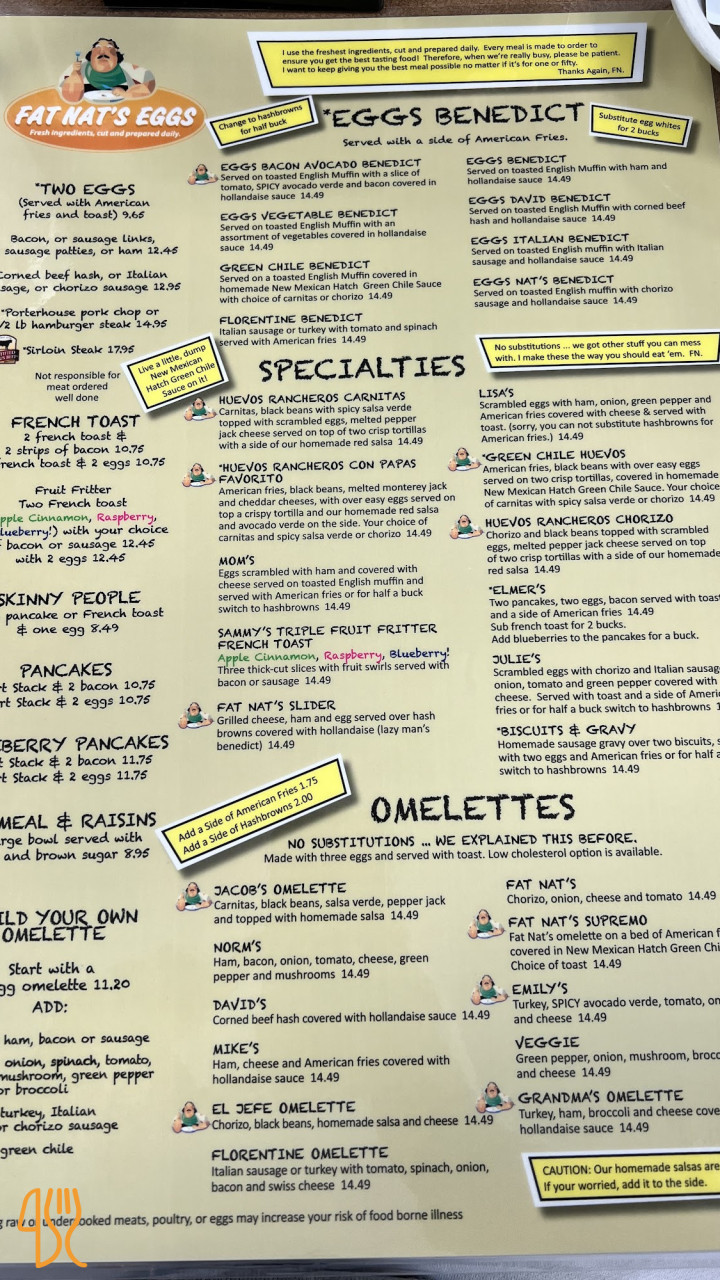 I use the freshest ingredients, cut and prepared daily. Every meal is made to order to
ensure you get the best tasting food! Therefore, when we're really busy, please be patient.
I want to keep giving you the best meal possible no matter if it's for one or fifty.
Thanks Again, FN.
FAT NAT'S EGGS
Fresh ingredients, cut and prepared daily.
Change to hashbrowns
for half buck
*EGGS BENEDICT
Served with a side of American Fries.
Substitute egg whites
for 2 bucks
*TWO EGGS
(Served with American
fries and toast) 9.65
Bacon, or sausage links,
sausage patties, or ham 12.45
Corned beef hash, or Italian
or chorizo sausage 12.95
*Porterhouse pork chop or
1/2 lb hamburger steak 14.95
*Sirloin Steak 17.95
Not responsible for
meat ordered
well done
FRENCH TOAST
2 french toast &
2 strips of bacon 10.75
french toast & 2 eggs 10.75
Fruit Fritter
Two French toast
Cinnamon, Raspberry,
with your choice
bacon or sausage 12.45
with 2 eggs 12.45
SKINNY PEOPLE
pancake or French toast
& one egg 8.49
PANCAKES
Stack & 2 bacon 10.75
Stack & 2 eggs 10.75
PANCAKES
Stack & 2 bacon 11.75
Stack & 2 eggs 11.75
& RAISINS
bowl served with
and brown sugar 8.95
YOUR OWN
OMELETTE
Start with a
omelette 11.20
ADD:
ham, bacon or sausage
onion, spinach, tomato,
mushroom, green pepper
or broccoli
turkey, Italian
or chorizo sausage
green chile
EGGS BACON AVOCADO BENEDICT
Served on toasted English Muffin with a slice of
tomato, SPICY avocado verde and bacon covered in
hollandaise sauce 14.49
EGGS VEGETABLE BENEDICT
Served on toasted English Muffin with an
assortment of vegetables covered in hollandaise
sauce 14.49
GREEN CHILE BENEDICT
Served on a toasted English Muffin covered in
homemade New Mexican Hatch Green Chile Sauce
with choice of carnitas or chorizo 14.49
FLORENTINE BENEDICT
Italian sausage or turkey with tomato and spinach
served with American fries 14.49
EGGS BENEDICT
Served on toasted English Muffin with ham and
hollandaise sauce 14.49
EGGS DAVID BENEDICT
Served on toasted English Muffin with corned beef
hash and hollandaise sauce 14.49
EGGS ITALIAN BENEDICT
Served on toasted English Muffin with Italian
sausage and hollandaise sauce 14.49
EGGS NAT'S BENEDICT
Served on toasted English muffin with chorizo
sausage and hollandaise sauce 14.49
Live a little, dump
New Mexican
Hatch Green Chile
Sauce on it!
SPECIALTIES
No substitutions ... we got other stuff you can mess
with. I make these the way you should eat 'em. FN.
HUEVOS RANCHEROS CARNITAS
Carnitas, black beans with spicy salsa verde
topped with scrambled eggs, melted pepper
jack cheese served on top of two crisp tortillas
with a side of our homemade red salsa 14.49
*HUEVOS RANCHEROS CON PAPAS
FAVORITO
American fries, black beans, melted monterey jack
and cheddar cheeses, with over easy eggs served on
top a crispy tortilla and our homemade red salsa
and avocado verde on the side. Your choice of
carnitas and spicy salsa verde or chorizo 14.49
MOM'S
Eggs scrambled with ham and covered with
cheese served on toasted English muffin and
served with American fries or for half a buck
switch to hashbrowns 14.49
SAMMY'S TRIPLE FRUIT FRITTER
FRENCH TOAST
Apple Cinnamon, Raspberry, Blueberry!
Three thick-cut slices with fruit swirls served with
bacon or sausage 14.49
FAT NAT'S SLIDER
Grilled cheese, ham and egg served over hash
browns covered with hollandaise (lazy man's
benedict) 14.49
LISA'S
Scrambled eggs with ham, onion, green pepper and
American fries covered with cheese & served with
toast. (sorry, you can not substitute hashbrowns for
American fries.) 14.49
*GREEN CHILE HUEVOS
American fries, black beans with over easy eggs
served on two crisp tortillas, covered in homemade
New Mexican Hatch Green Chile Sauce. Your choice
of carnitas with spicy salsa verde or chorizo 14.49
HUEVOS RANCHEROS CHORIZO
Chorizo and black beans topped with scrambled
eggs, melted pepper jack cheese served on top
of two crisp tortillas with a side of our homemade
red salsa 14.49
*ELMER'S
Two pancakes, two eggs, bacon served with toast
and a side of American fries 14.49
Sub french toast for 2 bucks.
Add blueberries to the pancakes for a buck.
JULIE'S
Scrambled eggs with chorizo and Italian sausage
onion, tomato and green pepper covered with
cheese. Served with toast and a side of
fries or for half a buck switch to hashbrowns
*BISCUITS & GRAVY
Homemade sausage gravy over two biscuits,
with two eggs and American fries or for half a
switch to hashbrowns 14.49
Add a Side of American Fries 1.75
Add a Side of Hashbrowns 2.00
OMELETTES
NO SUBSTITUTIONS ... WE EXPLAINED THIS BEFORE.
Made with three eggs and served with toast. Low cholesterol option is available.
JACOB'S OMELETTE
Carnitas, black beans, salsa verde, pepper jack
and topped with homemade salsa 14.49
NORM'S
Ham, bacon, onion, tomato, cheese, green
pepper and mushrooms 14.49
DAVID'S
Corned beef hash covered with hollandaise sauce 14.49
MIKE'S
Ham, cheese and American fries covered with
hollandaise sauce 14.49
EL JEFE OMELETTE
Chorizo, black beans, homemade salsa and cheese 14.49
FLORENTINE OMELETTE
Italian sausage or turkey with tomato, spinach, onion,
bacon and swiss cheese 14.49
FAT NAT'S
Chorizo, onion, cheese and tomato 14.49
FAT NAT'S SUPREMO
Fat Nat's omelette on a bed of American
covered in New Mexican Hatch Green
Choice of toast 14.49
EMILY'S
Turkey, SPICY avocado verde, tomato,
and cheese 14.49
VEGGIE
Green pepper, onion, mushroom,
and cheese 14.49
GRANDMA'S OMELETTE
Turkey, ham, broccoli and cheese
hollandaise sauce 14.49
CAUTION: Our homemade salsas are
If your worried, add it to the side.
raw or undercooked meats, poultry, or eggs may increase your risk of food borne illness